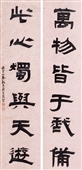 萬物皆于我備
此心獨與天遊